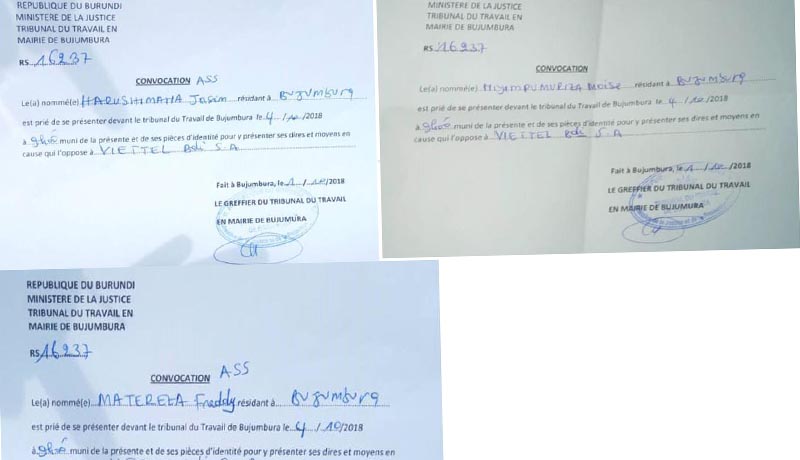 REPUBLIQUE DU BURUNDI
MINISTERE DE LA JUSTICE
TRIBUNAL DU TRAVAIL EN
MAIRIE DE BUJUMBURA
RS 16237
CONVOCATION ASS
Le(a) nommé(e) HARUSHIMANA résidant à Bujumbura
est prié de se présenter devant le tribunal du Travail de Bujumbura le 4/10/2018
à muni de la présente et de ses pièces d'identité pour y présenter ses dires et moyens en
cause qui l'oppose à VIETTEL Bdi S.A
Fait à Bujumbura, le 1/10/2018
LE GREFFIER DU TRIBUNAL DU TRAVAIL
EN MAIRIE DE BUJUMURA
MINISTERE DE LA JUSTICE
TRIBUNAL DU TRAVAIL EN
MAIRIE DE BUJUMBURA
RS 16237
CONVOCATION
Le(a) nommé(e) Moise résidant à Bujumbura
est prié de se présenter devant le tribunal du Travail de Bujumbura le 4/10/2018
à muni de la présente et de ses pièces d'identité pour y présenter ses dires et moyens en
cause qui l'oppose à VIETTEL Bdi S.A
Fait à Bujumbura, le 1/10/2018
LE GREFFIER DU TRIBUNAL DU TRAVAIL
EN MAIRIE DE BUJUMURA
REPUBLIQUE DU BURUNDI
MINISTERE DE LA JUSTICE
TRIBUNAL DU TRAVAIL EN
MAIRIE DE BUJUMBURA
RS 16237
CONVOCATION ASS
Le(a) nommé(e) Freddy résidant à Bujumbura
est prié de se présenter devant le tribunal du Travail de Bujumbura le 4/10/2018
à muni de la présente et de ses pièces d'identité pour y présenter ses dires et moyens en